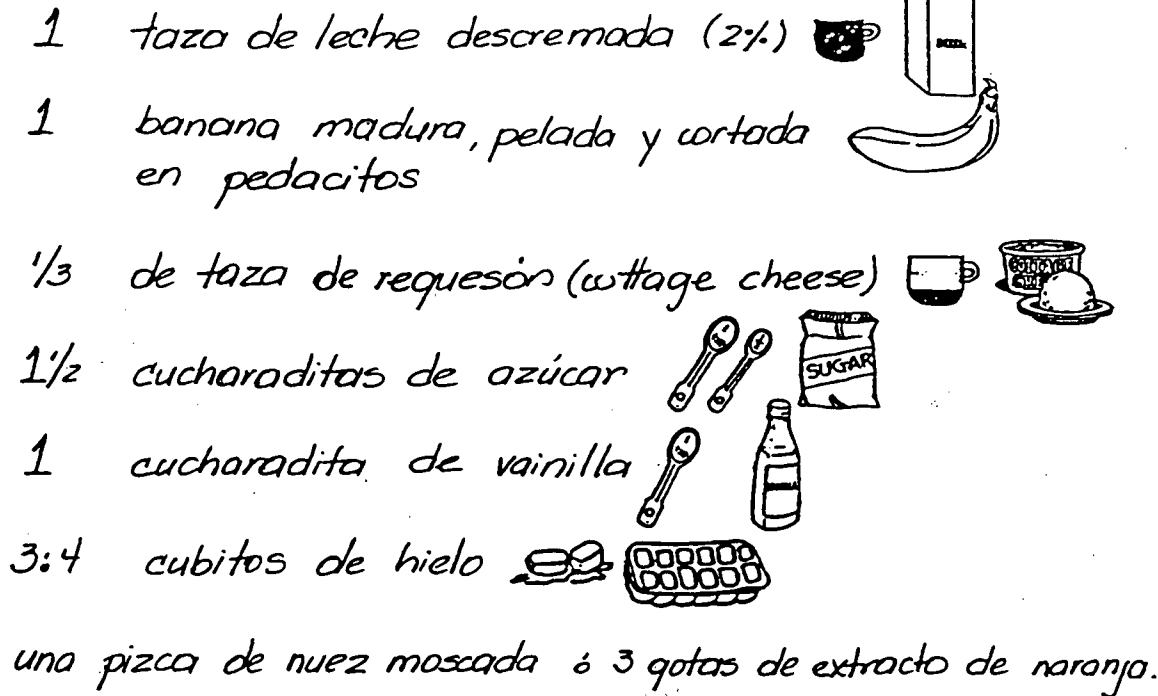 1 taza de leche descremada (2%)
1 banana madura, pelada y cortada
en pedacitos
1/3 de taza de requesón (cottage cheese)
1 1/2 cucharaditas de azúcar
SUGAR
1 cucharadita de vainilla
3:4 cubitos de hielo
una pizca de nuez moscada ó 3 gotas de extracto de naranja.